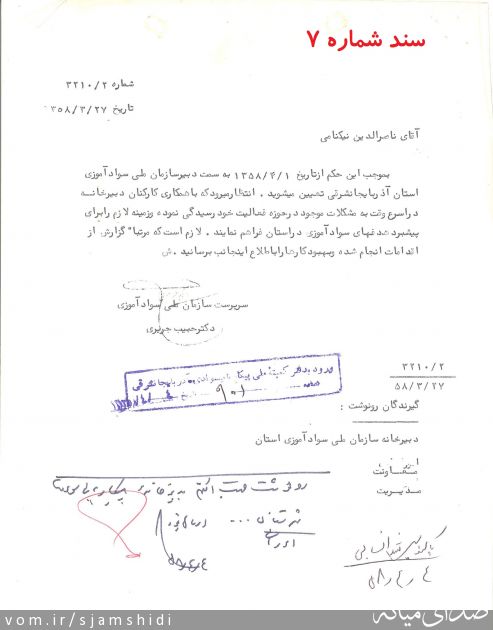 سند شماره ۷
شماره ۳۲۱۰/۲
تاریخ ۳۵۸/۳/۲۷
آقای ناصرالدین نیکنامی
بموجب این حکم ازتاریخ ۱۳۵۸/۴/۱ به سمت دبیرسازمان ملی سوادآموزی
استان آذربایجانشرقی تعیین میشوید . انتظارمیرودکه باهمکاری کارکنان دبیرخانه
دراسرع وقت به مشکلات موجود درحوزه فعالیت خود رسیدگی نموده وزمینه لازم رابرای
پیشبردهدفهای سوادآموزی دراستان فراهم نمایند . لازم است که مرتبا" گزارش از
اقدامات انجام شده وبهبودکارهاراباطلاع اینجانب برسانید . ش
سرپرست سازمان ملی سوادآموزی
دکترحبیب جریری
ورود بدفتر کمیته ملی پیکار با بیسوادی آذربایجانشرقی
۳۲۱۰/۲
۵۸/۳/۲۷
گیرندگان رونوشت :
دبیرخانه سازمان ملی سوادآموزی استان
امور
معاونت
مدیریت
رونوشت جهت
vom.ir/sjamshidi
صدای میانه